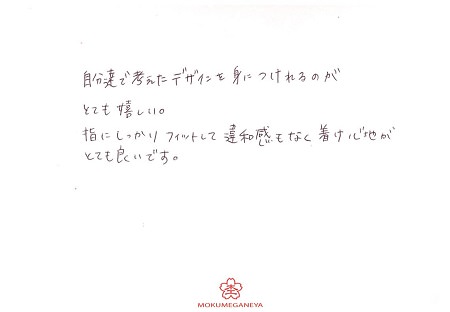 自分達で考えたデザインを身につけれるのが
とても嬉しい。
指にしっかりフィットして違和感もなく着け心地が
とても良いです。
MOKUMEGANEYA